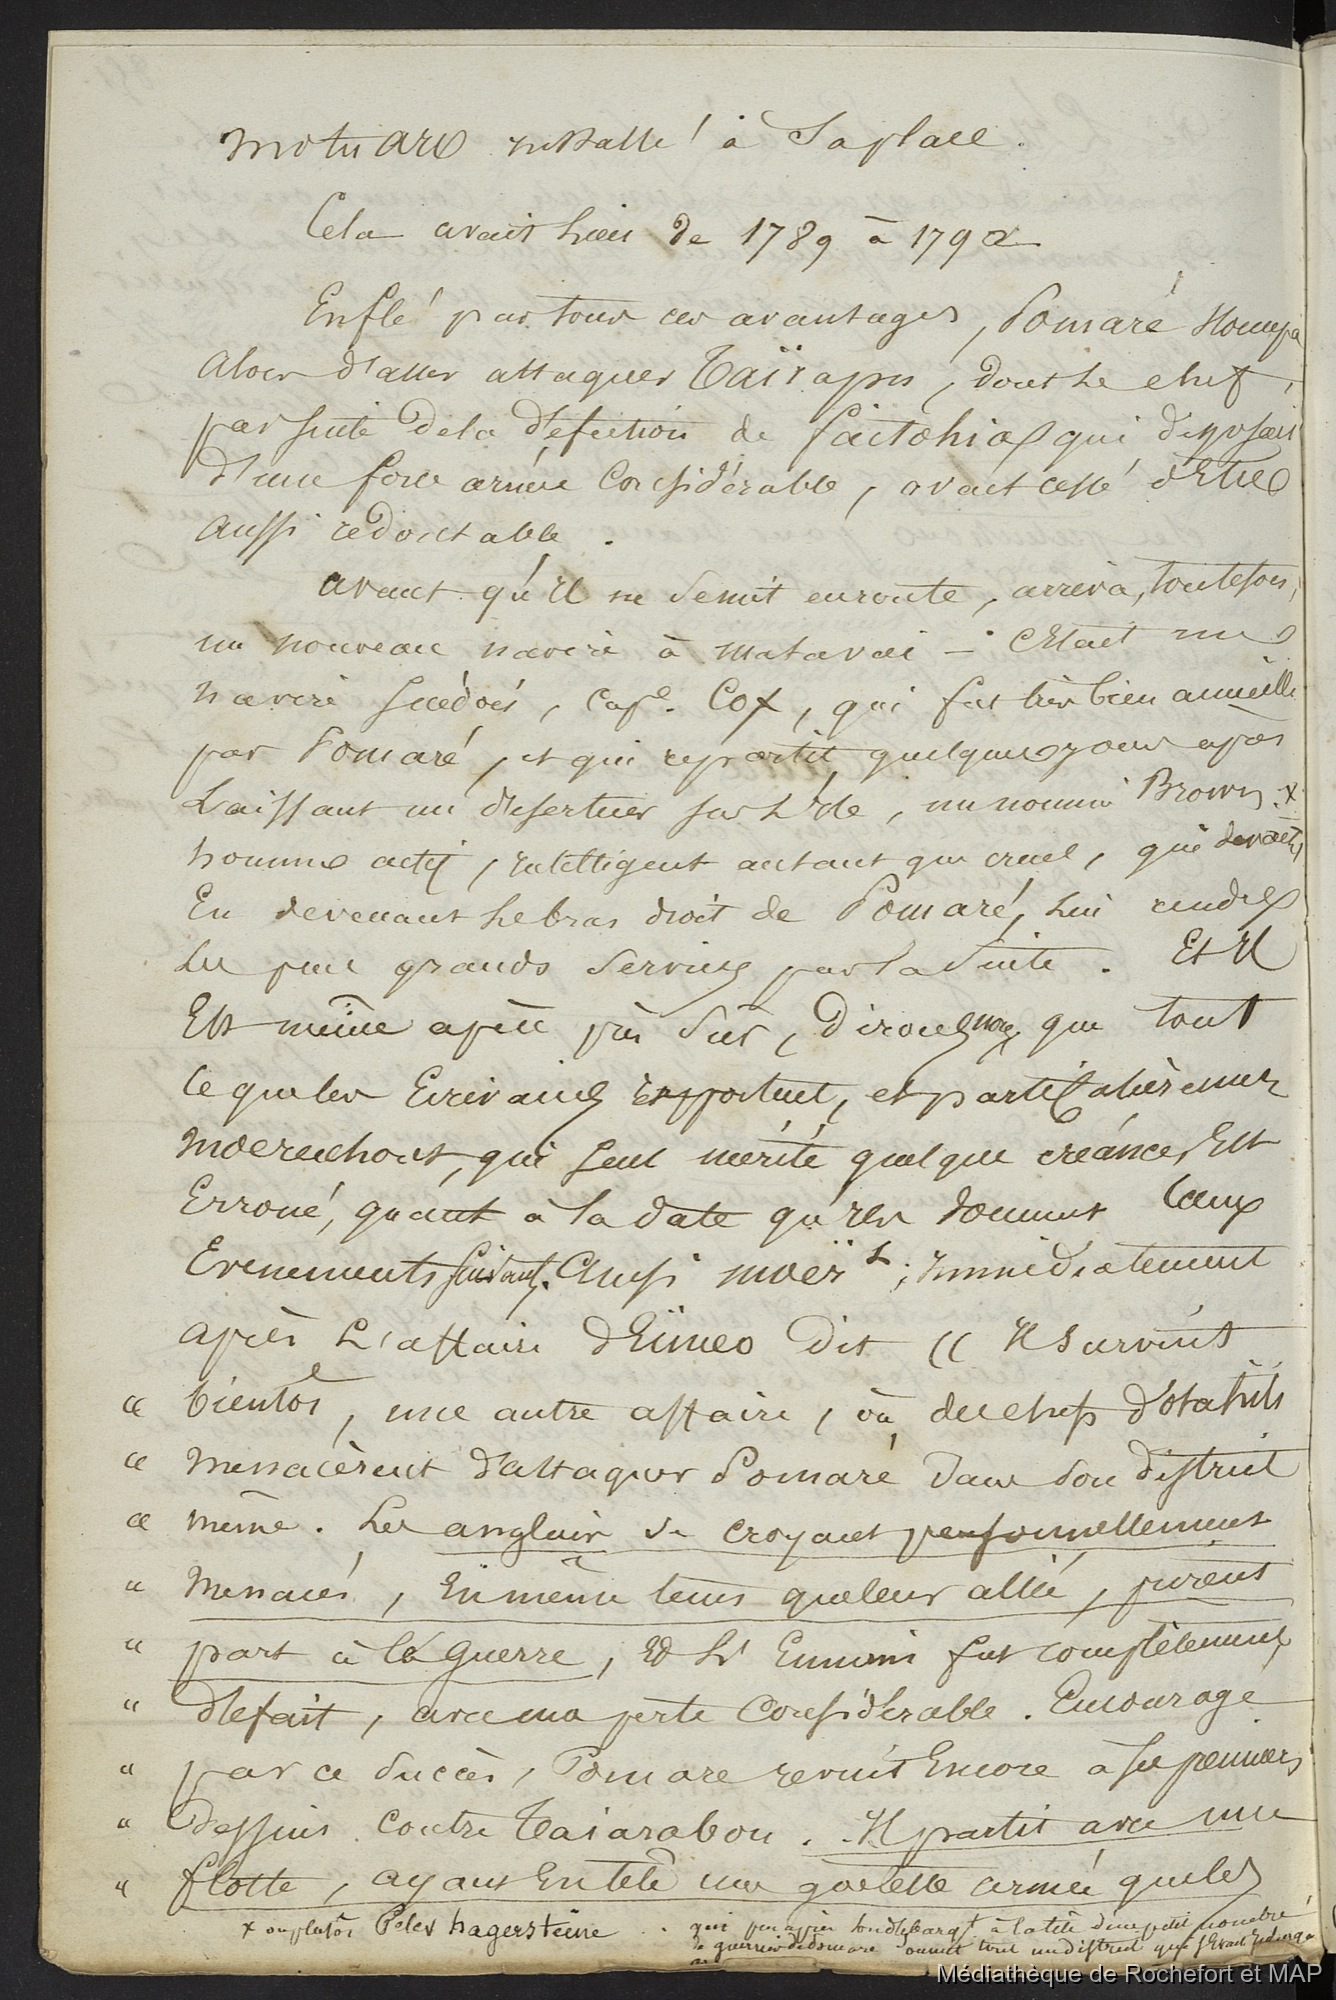 Motuaro installé à Sa place.
Cela avait lieu de 1789 à 1792
Enflé par tous ces avantages, Pomaré
alors d'aller attaquer Taïrapu, dont le chef,
par suite de la défection de qui disposait
d'une force armée Considérable, avait cessé d'Etre
aussi redoutable.
avant qu'Il ne Se mit en route, arriva, toutefois,
un nouveau navire à Matavai - C'Etait un
navire Suédois, Cap.e Cox, qui fut très bien accueilli
par Pomaré, et qui repartit quelques jours après
Laissant un déserteur sur L'Ile, un nommé Brown x
homme actif, intelligent autant que cruel, qui devait,
En devenant le bras droit de Pomaré, lui rendre
les plus grands Services par la Suite. Et Il
Est même après que tout
ce que les Ecrivains rapportent, et particulièrement
Moerenhout, qui seul mérite quelque créance, Est
Erroné, quant à la date qu'Ils donnent aux
Evenements suivants. Ainsi Moer.t, immédiatement
après L'affaire d'Eïmeo dit (( Il survint
" bientôt, une autre affaire, où des chefs d'Otahiti
" menacèrent d'attaquer Pomaré dans Son district
" même. Les anglais se croyant personnellement
" menacés, En même tems que leur allié, prirent
" part à la guerre, Et L'Ennemi fut complètement
" défait, avec une perte Considérable. Encouragé
" par ce Succès, Pomare revint Encore à ses premiers
" desseins contre Taiarabou. Il partit avec une
" flotte, ayant En tête une goëlette armée que les
x ou plutôt Peter hagersteine. qui peu après à la tête d'un petit nombre
de guerriers de Pomare soumit tout un district